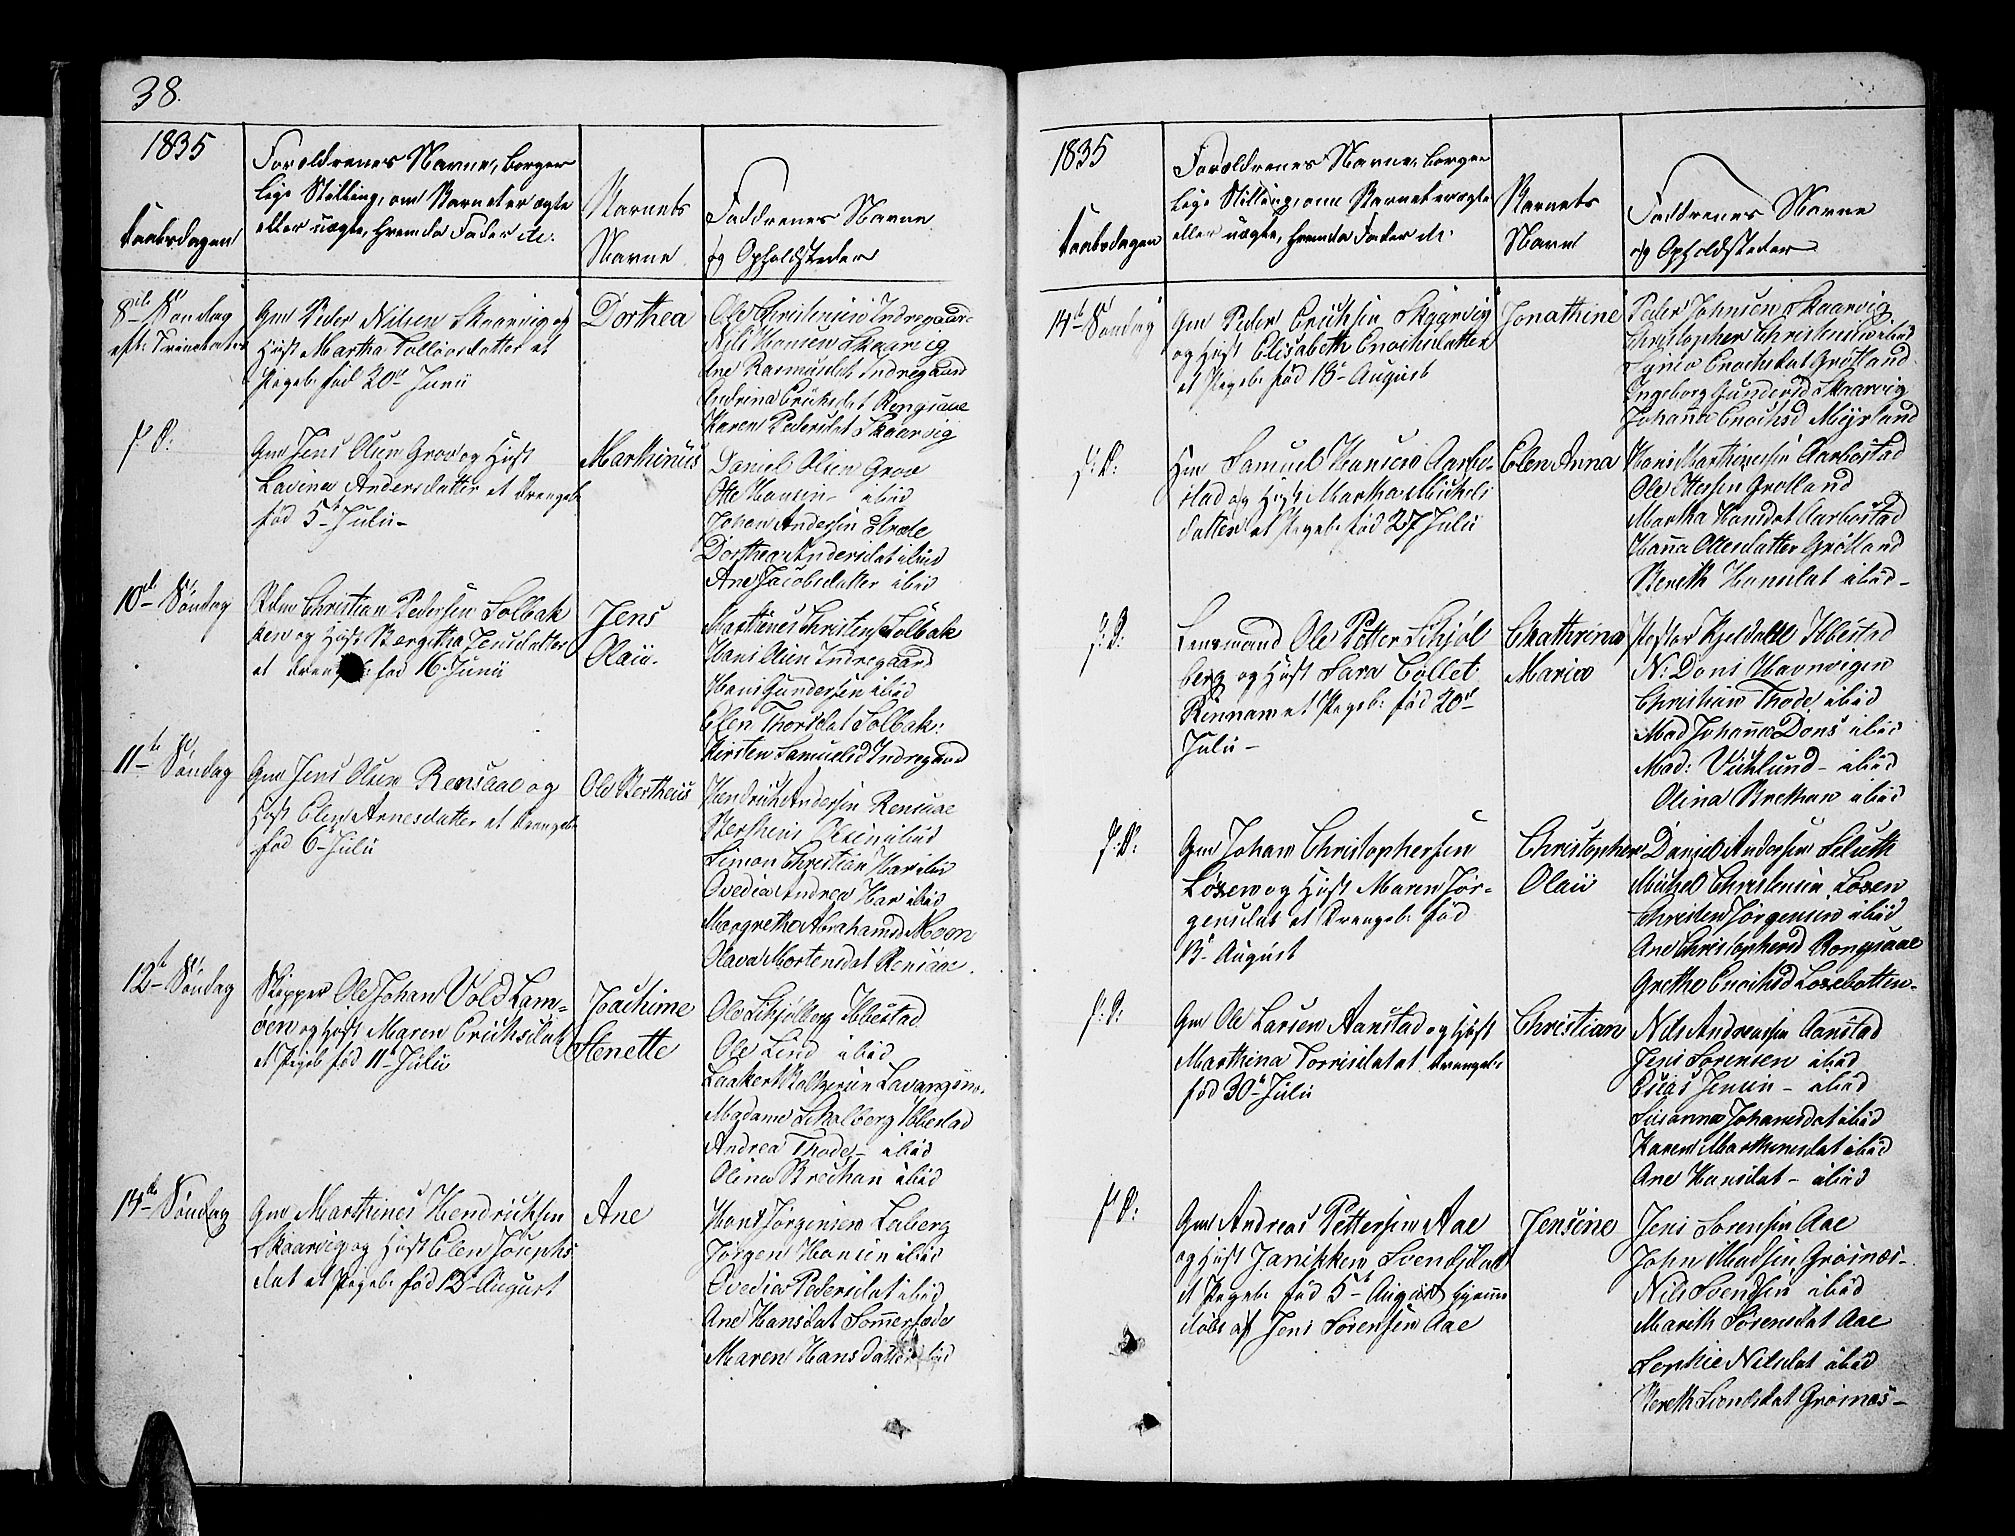 38.
1835
Daabsdagen
Forældrenes Navne, borger
lige Stilling, om Barnet er ægte
eller uægte, fremda Fader etc.
Barnets
Navne
Faddrenes Navne
og Opholdsteder
8de Søndag
eft. Trinitatis
Gm Peder Nilsen Skaarvig og
Hust Martha Tolløvsdatter et
Pigeb. fød 20de Junii
Dorthea
Ole Christensen Indregaard
Nils Hansen Skaarvig
Ane Rasmusdat Indregaard
Andrina Eriksdat Rengsaae
Karen Pedersdat Skaarvig
p. D:
Gm Jens Olsen Grov og Hust
Lavina Andersdatter et Drengeb
fød 5te Julii
Marthinus
Daniel Olsen Grov
Otte Hansen ibid
Johan Andersen
Dorthea Andersdat ibid
Ane Jacobsdatter ibid
10de Søndag
Christian Pedersen Solbak
ken og Hust Beregitha Jensdatter
et Drengeb: fød 16 Junii
Jens
Olaii.
Marthines Christens Solbak
Hans Olsen Indregaard
Hans Gundersen ibid
Elen Thorsdat Solbak:
Kirsten Samuelsd Indregaard
11te Søndag
Gm Jens Olsen Rensaae og
Hust Elen Arnesdatter et Drengeb
fød 6te Julii
Ole Bertheus
Hendrich Andersen Rensaae
Bertheus Olsen ibid
Simon Christian Har ibid
Ovedia Andrea Har ibid
Margrethe Abrahamsd Moen
Olava Mortensdat Rensaae.
12te Søndag
Skipper Ole Johan Vold Lam-
øen og Hust Maren Erichsdat
et Pigeb fød 11te Julii
Joachime
Stenette
Ole Schjelberg Ibbestad
Ole Lind ibid
Laakert Lavangsn.
Madame Schølberg Ibbestad
Andrea Thode ibid
Olina Brechan ibid
14de Søndag
Gm Marthines Hendrichsen
Skaarvig og Hust Elen Josephs
dat et Pigeb fød 13de August
Ane
Hans Jørgensen Leiberg
Jørgen Hansen ibid
Ovedia Pedersdat ibid
Ane Hansdat Sommersæde
Maren Hansdatter ibid
1835
Daabsdagen
Forældrenes Navne, borger
lige Stilling, om Barnet er ægte
eller uægte, fremda Fader etc.
Barnets
Navne
Faddrenes Navne
og Opholdsteder
14de Søndag
Gm Peder Erichsen Skaarvig
og Hust Elisabeth Enochsdatter
et Pigeb. fød 18de August
Jonathine
Peder Johnsen Skaarvig
Christopher Christensen ibid
Enochsdat Grøtland
Ingeborg Gundersd Skaarvig
Johanna Enochsd Myrland
p: D:
Hm Samuel Hansen Aarbo-
stad og Hust Martha Michels
datter et Pigeb fød 27 Julii
Elen Anna
Hans Marthinesen Aarbostad
Ole Ottesen Grøtland
Martha Hansdat Aarbostad
Hanna Ottesdatter Grøtland
Bereth Hansdat ibid-
p: D:
Lensmand Ole Petter Schjøl
berg og Hust Sara Collet
Rennam et Pigeb: fød 20de
Julii -
Chathrina
Maria
Pastor Kjeldahl Ibbestad
N: Dons Havnvigen
Christian Thode ibid
Mad Johanna Dons ibid
Mad: Vichlund - ibid
Olina Brekhan ibid
p: D:
Gm Johan Christophersen
Løsen og Hust Maren Jør-
gensdat et Drengeb. fød
13de August
Christopher
Olaii
Daniel Andersen Schutt
Michel Christensen Løsen
Christen Jørgensen ibid
Ane Christophersd Rongsaae
Grethe Enochsd Løsebotten.
p: D:
Gm Ole Larsen Aanstad og Hust
Marthina Torrisdat et Drengeb:
fød 30te Julii
Christian
Nils Andreassen Aanstad
Jens Sørensen ibid
Esias Jensen - ibid
Susanna Johansdat ibid
Karen Marthinesdat ibid
Ane Hansdat - ibid
p D:
Gm Andreas Pettersen Aae
og Hust Janikken Svendsdat
et Pigeb fød 5te August hjemme
døbt af Jens Sørensen Aae
Jensine
Jens Sørensen Aae
John Madsen Grøsnæs-
Nils Svendsen ibid
Marith Sørensdat Aae
Sophie Nilsdat ibid
Bereth Svendsdat Grøsnæs-